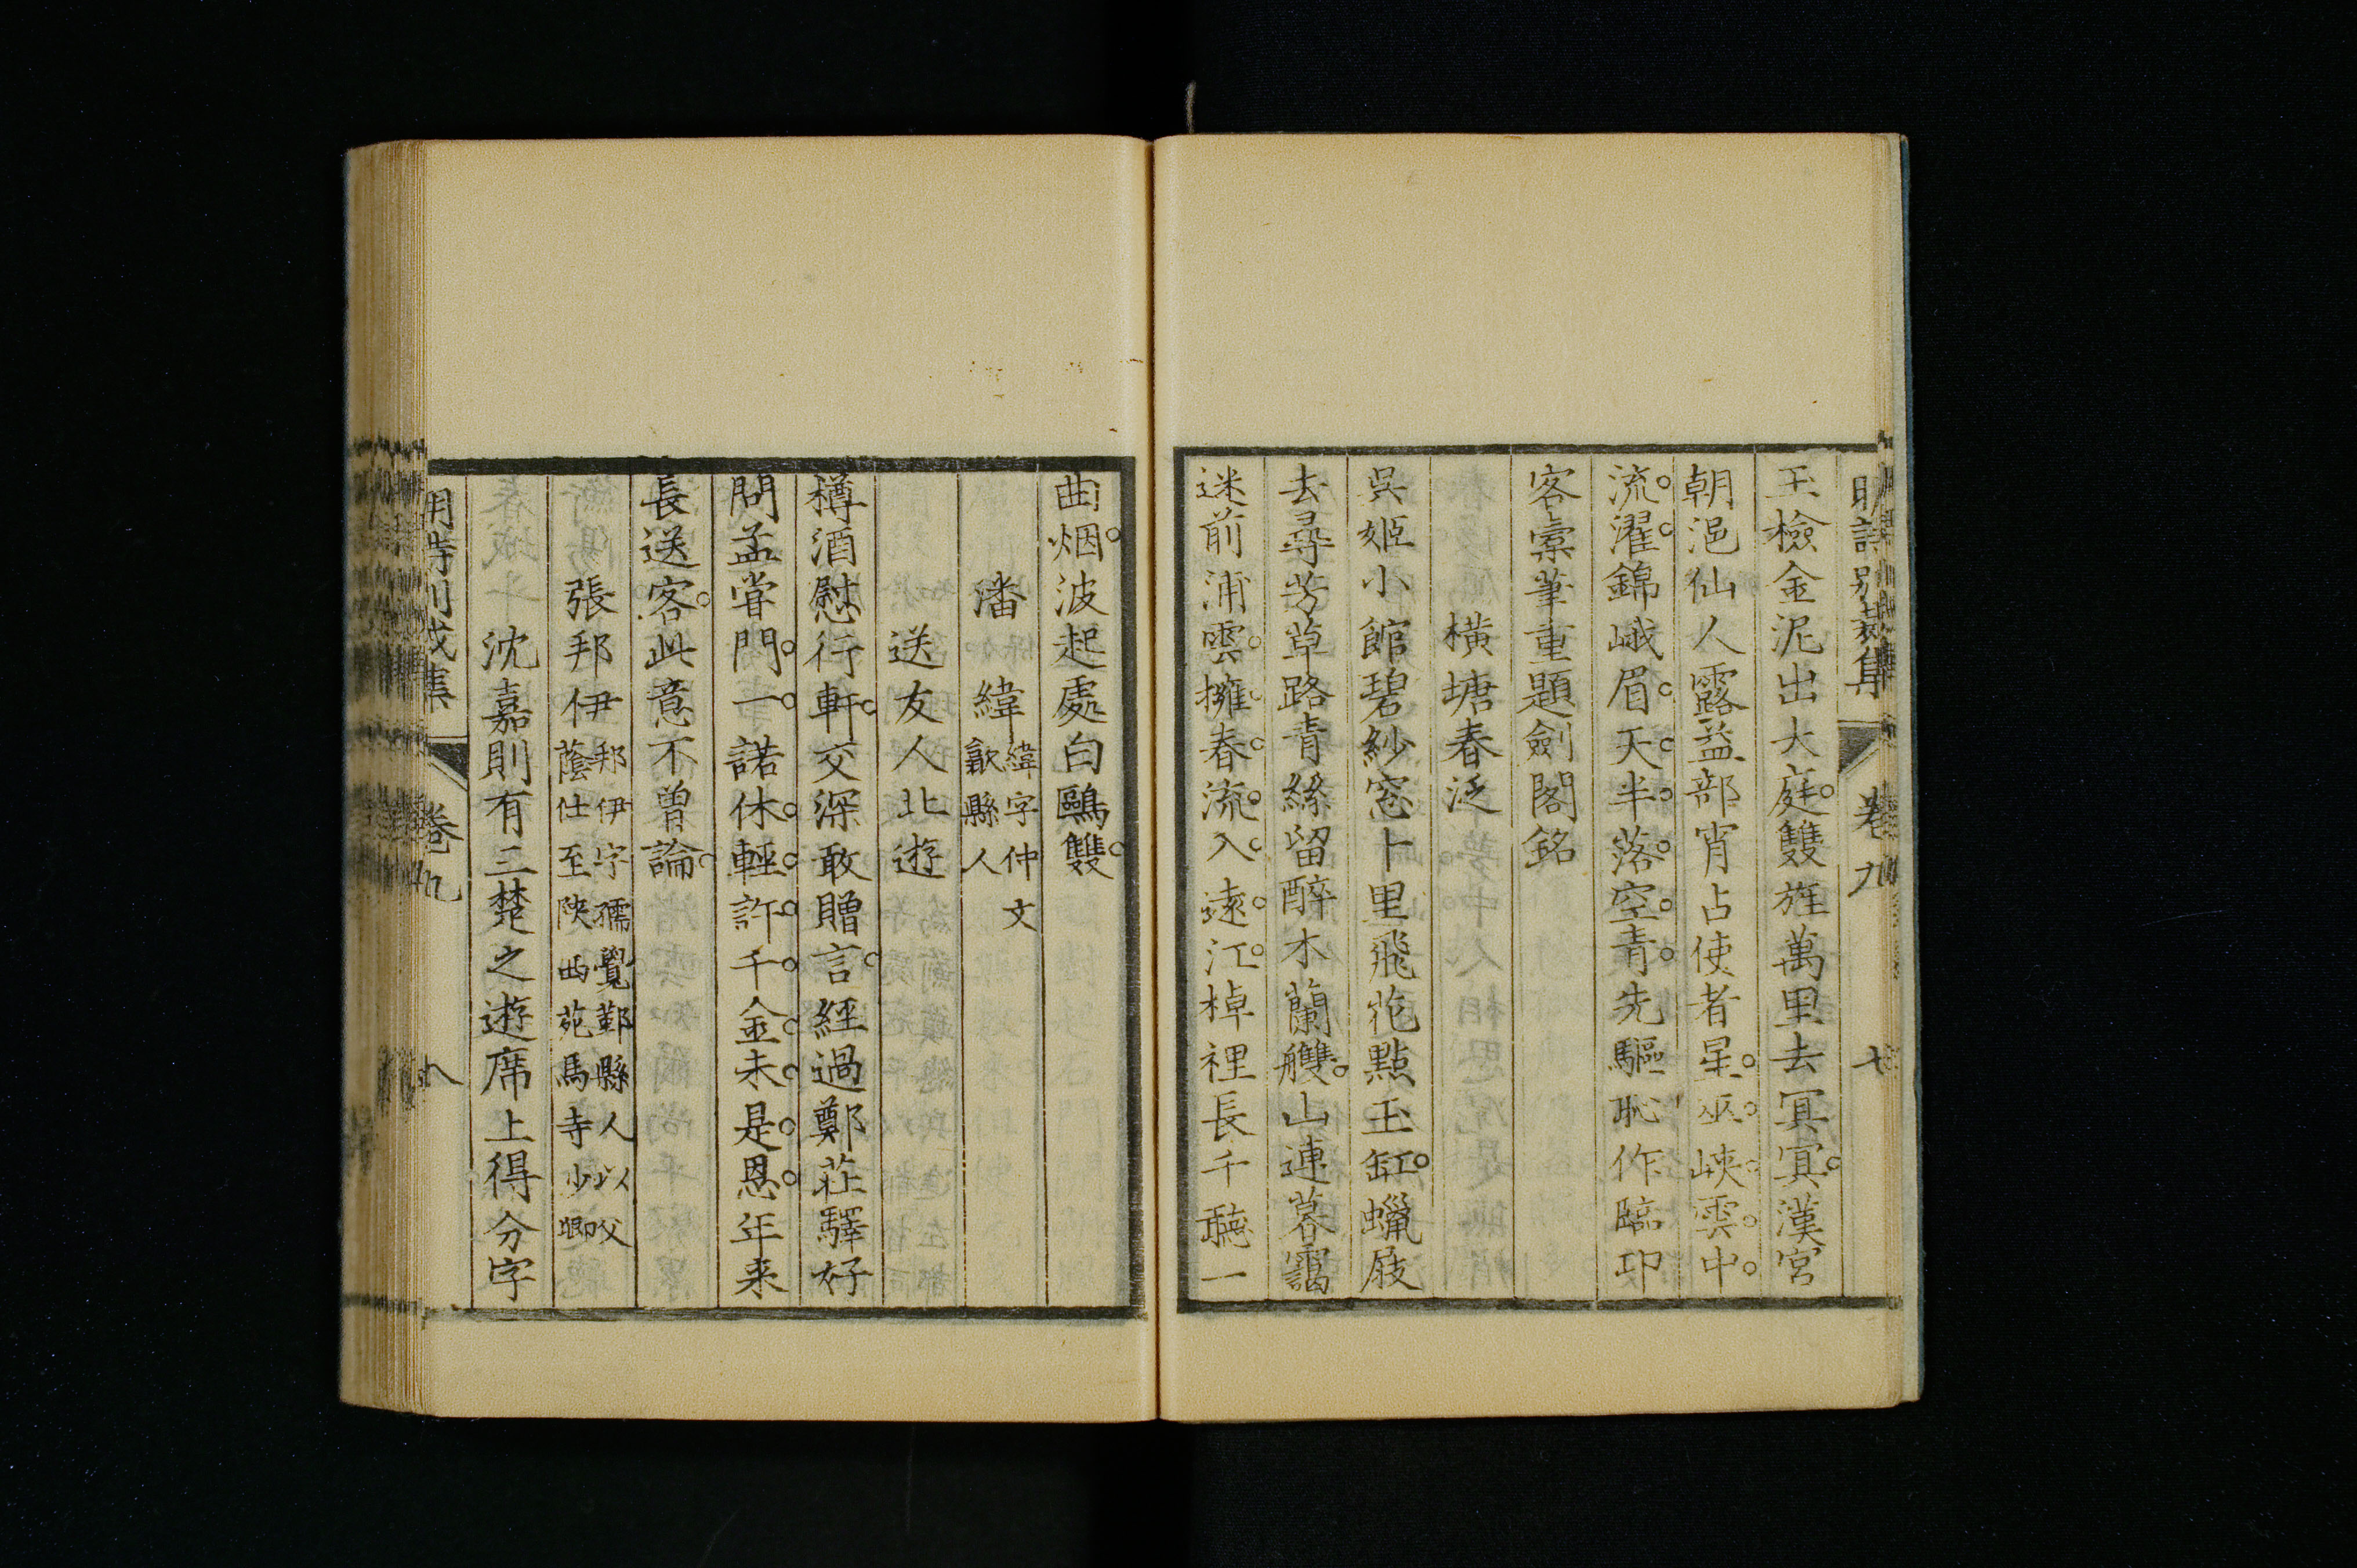 明詩別裁集 卷九 七
玉檢金泥出大庭雙旌萬里去冥冥漢宮
朝浥仙人露益部宵占使者星巫峽雲中
流濯錦峨眉天半落空青先驅恥作臨卭
客橐筆重題劍閣銘
橫塘春泛
吳姬小館碧紗窓十里飛花點玉缸蠟屐
去尋芳草路青絲留醉木蘭艭山連暮靄
迷前浦雲擁春流入遠江棹裡長千聽一
曲烟波起處白鷗雙
潘緯 緯字仲文歙縣人
送友人北遊
樽酒慰行軒交深敢贈言經過鄭莊驛好
問孟甞門一諾休輕許千金未是恩年来
長送客此意不曾論
張邦伊 邦伊字孺覺鄞縣人以父蔭仕至陝西苑馬寺少卿
沈嘉則有三楚之遊席上得分字
卷九 八